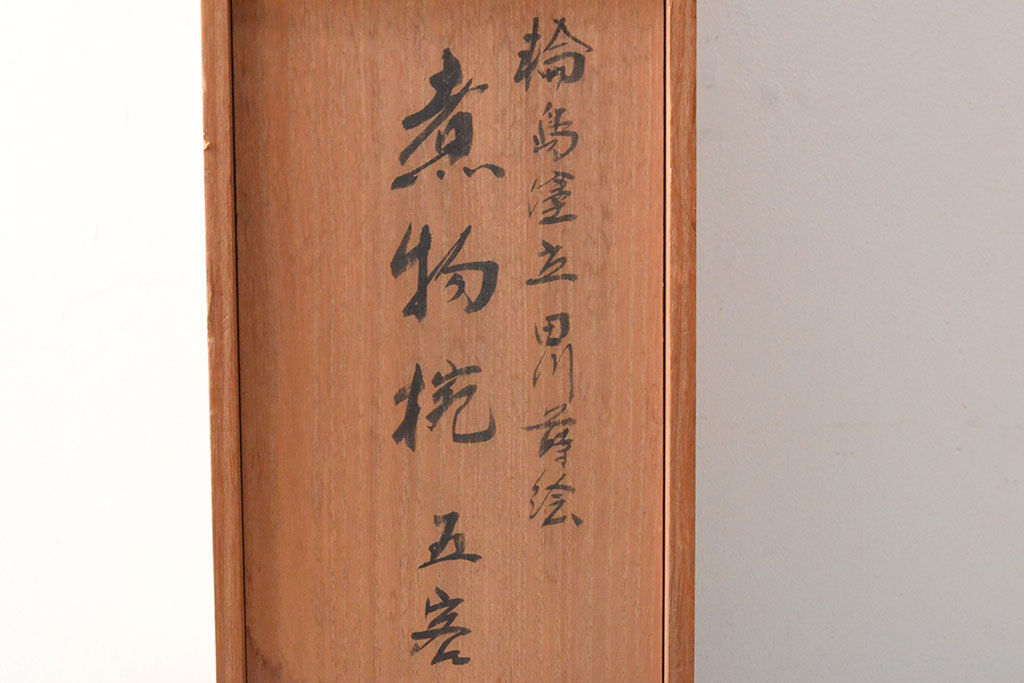 輪島塗立田川蒔絵
煮物椀 五客